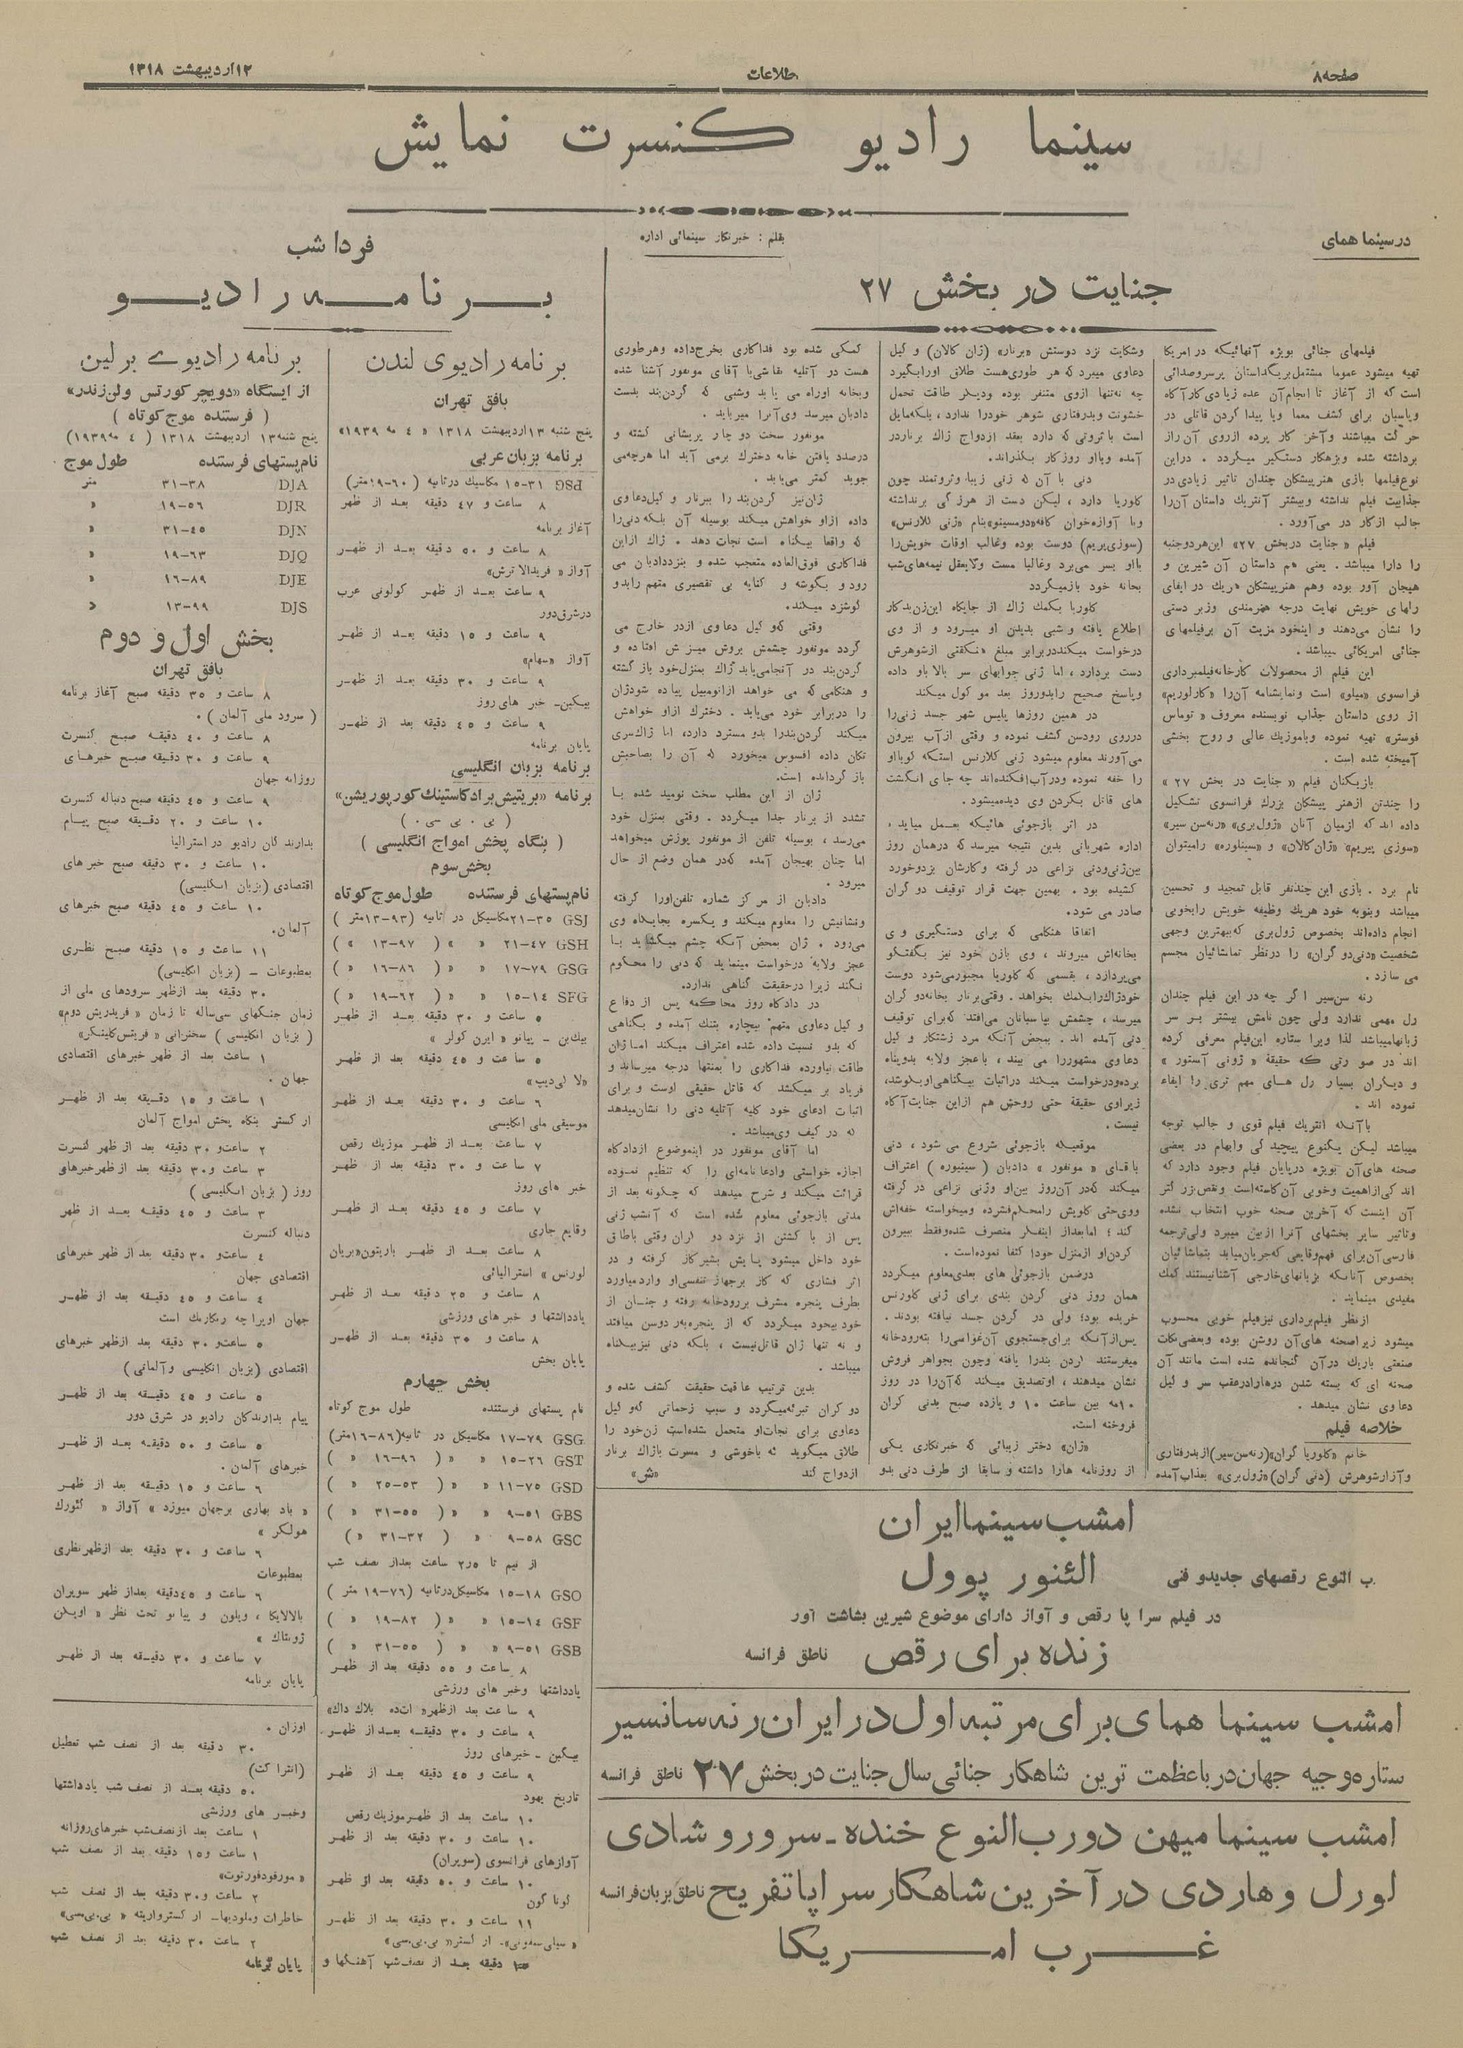 صفحه ۸
طلاعات
۱۲ اردیبهشت ۱۳۱۸
سینما رادیو کنسرت نمایش
در سینما همای
بقلم : خبرنگار سینمائی اداره
جنایت در بخش ۲۷
فیلمهای جنائی بویژه آنهائیکه در امریکا
تهیه میشود عموما مشتمل بریکداستان پرسروصدائی
است که از آغاز تا انجام آن عده زیادی کارآگاه
وپاسبان برای کشف معما ویا پیدا کردن قاتلی در
حرکت میباشند وآخر کار پرده ازروی آن راز
برداشته شده وبزهکار دستگیر میگردد . دراین
نوع فیلمها بازی هنرپیشکان چندان تاثیر زیادی در
جذابیت فیلم نداشته وبیشتر آنتریك داستان آن را
جالب ازکار در می‌آورد .
فیلم « جنایت دربخش ۲۷» این هردوجنبه
را دارا میباشد . یعنی هم داستان آن شیرین و
هیجان آور بوده وهم هنرپیشکان هریك در ایفای
رلهای خویش نهایت درجه هنرمندی وزبر دستی
را نشان می‌دهند و اینخود مزیت آن برفیلمهای
جنائی امریکائی میباشد .
این فیلم از محصولات کارخانه فیلمبرداری
فرانسوی «میلو» است ونمایشنامه آن‌را «کارلوریم»
از روی داستان جذاب نویسنده معروف « توماس
فوستر» تهیه نموده وباموزیك عالی و روح بخشی
آمیخته شده است .
بازیکنان فیلم « جنایت در بخش ۲۷ »
را چندتن ازهنر پیشکان بزرك فرانسوی تشکیل
داده اند که ازمیان آنان «ژول بری» «رنه سن سیر»
«سوزی پیریم» «ژان کالان» و «سینیوره» رامیتوان
نام برد . بازی این چندنفر قابل تمجید و تحسین
میباشد وبنوبه خود هریك وظیفه خویش رابخوبی
انجام داده‌اند بخصوص ژول بری که ببهترین وجهی
شخصیت «دنی دو گران» را درنظر تماشائیان مجسم
می سازد .
رنه سن سیر اگر چه در این فیلم چندان
رل مهمی ندارد ولی چون نامش بیشتر بر سر
زبانهامیباشد لذا ویرا ستاره این فیلم معرفی کرده
اند در صورتی که حقیقة « ژونی آستور »
و دیگران بسیار رل های مهم تری را ایفاء
نموده اند .
باآنکه انتریك فیلم قوی و جالب توجه
میباشد لیکن یکنوع پیچیدگی وابهام در بعضی
صحنه های آن بویژه درپایان فیلم وجود دارد که
اندکی ازاهمیت وخوبی آن کاسته است ونقص بزرگتر
آن اینست که آخرین صحنه خوب انتخاب نشده
وتاثیر سایر بخشهای آنرا ازبین میبرد ولی ترجمه
فارسی آن برای فهم وقایعی که جریان مییابد بتماشائیان
بخصوص آنانکه بزبانهای خارجی آشنا نیستند کمك
مفیدی مینماید .
ازنظر فیلم برداری نیزفیلم خوبی محسوب
میشود زیرا صحنه های آن روشن بوده وبعضی نکات
صنعتی باریك درآن گنجانده شده است مانند آن
صحنه ای که بسته شدن درهارا درعقب سر وکیل
دعاوی نشان میدهد .
خلاصه فیلم
خانم «کلوریا گران» (رنه سن سیر) ازبدرفتاری
وآزار شوهرش (دنی گران) «ژول بری» بعذاب آمده
وشکایت نزد دوستش «برنار» (ژان کالان) و کیل
دعاوی میبرد که هر طوری هست طلاق اورابگیرد
چه نه تنها ازوی متنفر بوده ودیگر طاقت تحمل
خشونت وبدرفتاری شوهر خودرا ندارد ، بلکه مایل
است با ثروتی که دارد بعقد ازدواج ژاك برنار در
آمده وبااو روزگار بگذراند.
دنی با آن که زنی زیبا وثروتمند چون
کلوریا دارد ، لیکن دست از هرزگی برنداشته
وبا آوازه خوان کافه «دومسینو» بنام «ژنی کلارنس»
(سوزی پریم) دوست بوده وغالب اوقات خویش را
بااو بسر می‌برد وغالبا مست ولایعقل نیمه های شب
بخانه خود بازمیگردد
کلوریا بکمك ژاك از جایگاه این زن بدکار
اطلاع یافته و شبی بدیدن او میرود و از وی
درخواست میکند دربرابر مبلغ هنگفتی ازشوهرش
دست بردارد ، اما ژنی جوابهای سر بالا باو داده
وپاسخ صحیح رابدوروز بعد موکول میکند
در همین روزها پلیس شهر جسد زنی را
درروی رودسن کشف نموده و وقتی ازآب بیرون
می‌آورند معلوم میشود ژنی کلارنس استکه گویااو
را خفه نموده ودرآب افکنده‌اند چه جای انگشت
های قاتل بگردن وی دیده میشود .
در اثر بازجوئی هائیکه بعمل میاید ،
اداره شهربانی بدین نتیجه میرسد که درهمان روز
بین ژنی ودنی نزاعی در گرفته و کارشان بزدوخورد
کشیده بود . بهمین جهت قرار توقیف دوگران
صادر می شود.
اتفاقا هنکامی که برای دستگیری وی
بخانه‌اش میروند ، وی بازن خود نیز بگفتگو
می‌پردازد ، بقسمی که کلوریا مجبور می‌شود دوست
خودژاك رابکمك بخواهد . وقتی برنار بخانه دوگران
میرسد ، چشمش بپاسبانان می‌افتد که برای توقیف
دنی آمده اند . بمحض آنکه مرد زشتکار وکیل
دعاوی مشهور را می بیند ، باعجز ولابه بدوپناه
برده ودرخواست میکند دراثبات بیگناهی اوبکوشد،
زیراوی حقیقة حتی روحش هم ازاین جنایت آگاه
نیست .
موقعیکه بازجوئی شروع می شود ، دنی
باقای « مونفور » دادبان ( سینیوره ) اعتراف
میکند که در آن روز بین او وژنی نزاعی در گرفته
ووی حتی گلویش رامحکم فشرده ومیخواسته خفه‌اش
کند ؛ اما بعداز اینفکر منصرف شده وفقط ببیرون
کردن او ازمنزل خود اکتفا نموده است.
درضمن بازجوئی های بعدی معلوم میگردد
همان روز دنی گردن بندی برای ژنی کلورنس
خریده بود؛ ولی در گردن جسد نیافته بودند .
پس از آنکه برای جستجوی آن غواصی را بته رودخانه
میفرستند گردن بندرا یافته وچون بجواهر فروش
نشان میدهند ، اوتصدیق میکند که آن‌را در روز
۱۰ مه بین ساعت ۱۰ و یازده صبح بدنی گران
فروخته است.
«ژان» دختر زیبائی که خبرنگاری یکی
از روزنامه هارا داشته و سابقا از طرف دنی بدو
کمکی شده بود فداکاری بخرج داده وهر طوری
هست در آتلیه نقاشی با آقای مونفور آشنا شده
وبخانه اوراه می یابد وشبی که گردن‌بند بدست
دادبان میرسد وی آنرا میرباید .
مونفور سخت دوچار پریشانی گشته و
درصدد یافتن خانه دخترك برمی آید اما هرچه می
جوید کمتر می‌یابد .
ژان نیز گردن بند را ببرنار وکیل دعاوی
داده ازاو خواهش میکند بوسیله آن بلکه دنی را
که واقعا بیگناه است نجات دهد . ژاك ازاین
فداکاری فوق العاده متعجب شده و بنزددادبان می
رود و بگوشه و کنایه بی تقصیری متهم رابدو
گوشزد میکند.
وقتی که وکیل دعاوی ازدر خارج می
گردد مونفور چشمش بروی میزش افتاده و
گردن‌بند در آنجامی‌یابد ژاك بمنزل خود بازگشته
و هنکامی که می خواهد ازاتومبیل پیاده شود ژان
را دربرابر خود می‌یابد . دخترك ازاو خواهش
میکند گردن‌بندرا بدو مسترد دارد، اما ژاك سری
تکان داده افسوس میخورد که آن را بصاحبش
بازگردانده است.
ژان از این مطلب سخت نومید شده با
تشدد از برنار جدا میگردد . وقتی بمنزل خود
می‌رسد ، بوسیله تلفن از مونفور پوزش میخواهد
اما چنان بهیجان آمده که در همان وضع از حال
میرود .
دادبان از مرکز شماره تلفن اورا گرفته
ونشانیش را معلوم میکند و یکسره بجایگاه وی
می‌رود . ژان بمحض آنکه چشم میگشاید با
عجز ولابه درخواست مینماید که دنی را محکوم
نکند زیرا درحقیقت گناهی ندارد.
در دادگاه روز محاکمه پس از دفاع
وکیل دعاوی متهم بیچاره بتنك آمده و بگناهی
که بدو نسبت داده شده اعتراف میکند اما ژان
طاقت نیاورده فداکاری را بمنتها درجه میرساند و
فریاد بر میکشد که قاتل حقیقی اوست و برای
اثبات ادعای خود کلید آتلیه دنی را نشان میدهد
که در کیف وی میباشد .
اما آقای مونفور در اینموضوع ازدادگاه
اجازه خواستی وادعا نامه‌ای را که تنظیم نموده
قرائت میکند و شرح میدهد که چگونه بعد از
مدتی بازجوئی معلوم شده است که آنشب ژنی
پس از بازگشتن از نزد دوگران وقتی باطاق
خود داخل میشود پایش بشیرگاز گرفته و در
اثر فشاری که گاز برجهاز تنفسی او واردمیاورد
بطرف پنجره مشرف بررودخانه رفته و چنان از
خود بیخود میگردد که از پنجره به رودسن میافتد
و نه تنها ژان قاتل نیست ، بلکه دنی نیزبیگناه
میباشد .
بدین ترتیب عاقبت حقیقت کشف شده و
دوگران تبرئه میگردد و سبب زحماتی که وکیل
دعاوی برای نجات او متحمل شده است زن خود را
طلاق میگوید که باخوشی و مسرت باژاك برنار
ازدواج کند «ش»
امشب سینما ایران
ب النوع رقصهای جدید و فنی الئنور پوول
در فیلم سرا پا رقص و آواز دارای موضوع شیرین بشاشت آور
زنده برای رقص ناطق فرانسه
امشب سینما همای برای مرتبه اول در ایران رنه سانسیر
ستاره وجیه جهان در باعظمت ترین شاهکار جنائی سال جنایت در بخش ۲۷ ناطق فرانسه
امشب سینما میهن دورب النوع خنده ـ سرور و شادی
لورل و هاردی در آخرین شاهکار سراپا تفریح ناطق بزبان فرانسه
غرب امریکا
فردا شب
برنامه رادیو
برنامه رادیوی لندن
بافق تهران
پنج شنبه ۱۳ اردیبهشت ۱۳۱۸ « ۴ مه ۱۹۳۹»
برنامه بزبان عربی
۱۵-۳۱ مگاسیك در ثانیه (۶۰-۱۹ متر)
۸ ساعت و ۴۷ دقیقه بعد از ظهر
آغاز برنامه
۸ ساعت و ۵۰ دقیقه بعد از ظهر
آواز « فریدالاترش»
۹ ساعت بعد از ظهر کولونی عرب
درشرق دور
۹ ساعت و ۱۵ دقیقه بعد از ظهر
آواز «سهام»
۹ ساعت و ۳۰ دقیقه بعد از ظهر
بیگبن- خبر های روز
۹ ساعت و ۴۵ دقیقه بعد از ظهر
پایان برنامه
برنامه بزبان انگلیسی
برنامه «بریتیش برادکاستینك کورپوریشن»
( بی . بی سی . )
( بنگاه پخش امواج انگلیسی )
بخش سوم
نام پستهای فرستنده طول موج کوتاه
GSJ ۲۱-۳۵ مگاسیکل در ثانیه (۹۳-۱۳ متر )
GSH ۲۱-۴۷ « » (۹۷-۱۳ » )
GSG ۱۷-۷۹ « « (۸۶-۱۶ « )
SFG ۱۵-۱۴ « « (۶۲-۱۹ « )
۵ ساعت و ۳۰ دقیقه بعد از ظهر
بیك‌بن - پیانو « ایرن کولر »
۵ ساعت و ۴۵ دقیقه بعد از ظهر
«لالی دیپ»
۶ ساعت و ۳۰ دقیقه بعد از ظهر
موسیقی ملی انگلیسی
۷ ساعت بعد از ظهر موزیك رقص
۷ ساعت و ۳۰ دقیقه بعد از ظهر
خبر های روز
۷ ساعت و ۴۵ دقیقه بعد از ظهر
وقایع جاری
۸ ساعت بعد از ظهر باریتون «بریان
لورنس » استرالیائی
۸ ساعت و ۲۵ دقیقه بعد از ظهر
یادداشتها و خبر های ورزشی
۸ ساعت و ۳۰ دقیقه بعد از ظهر
پایان بخش
بخش چهارم
نام پستهای فرستنده طول موج کوتاه
GSG ۱۷-۷۹ مگاسیکل در ثانیه (۸۶-۱۶متر)
GST ۱۵-۲۶ « « (۹۶-۱۶ « )
GSD ۱۱-۷۵ « « (۵۳-۲۵ « )
GBS ۹-۵۱ « « (۵۵-۳۱ « )
GSC ۹-۵۸ « (۳۲-۳۱ « )
از نیم تا ۲٫۵ ساعت بعد از نصف شب
GSO ۱۵-۱۸ مگاسیکل درثانیه (۷۶-۱۹ متر )
GSF ۱۵-۱۴ « « (۸۲-۱۹ « )
GSB ۹-۵۱ « « (۵۵-۳۱ « )
۸ ساعت و ۵۵ دقیقه بعد از ظهر
یادداشتها وخبر های ورزشی
۹ ساعت بعد ازظهر « بلاك داك»
۹ ساعت و ۳۰ دقیقه بعد از ظهر
بیگبن - خبرهای روز
۹ ساعت و ۴۵ دقیقه بعد از ظهر
تاریخ یهود
۱۰ ساعت بعد از ظهر موزیك رقص
۱۰ ساعت و ۳۰ دقیقه بعد از ظهر
آوازهای فرانسوی (سوپران)
۱۰ ساعت و ۵۰ دقیقه بعد از ظهر
گوناگون
۱۱ ساعت و ۳۰ دقیقه بعد از ظهر
« سیلی سمفونی»- ارکستر« بی.بی.سی»
دقیقه بعد از نصف شب آهنگها و
برنامه رادیوی برلین
از ایستگاه «دویچر کورتس ولن زندر»
( فرستنده موج کوتاه )
پنج شنبه ۱۳ اردیبهشت ۱۳۱۸ ( ۴ مه ۱۹۳۹)
نام پستهای فرستنده طول موج
DJA ۳۱-۳۸ متر
DJR ۱۹-۵۶ «
DJN ۳۱-۴۵ «
DJQ ۱۹-۶۳ «
DJE ۱۶-۸۹ «
DJS ۱۳-۹۹ «
بخش اول و دوم
بافق تهران
۸ ساعت و ۳۵ دقیقه صبح آغاز برنامه
( سرود ملی آلمان ) .
۸ ساعت و ۴۰ دقیقه صبح کنسرت
۹ ساعت و ۳۰ دقیقه صبح خبرهای
روزانه جهان
۹ ساعت و ۴۵ دقیقه صبح دنباله کنسرت
۱۰ ساعت و ۲۰ دقیقه صبح پیام
بدارندگان رادیو در استرالیا
۱۰ ساعت و ۳۰ دقیقه صبح خبر های
اقتصادی (بزبان انگلیسی)
۱۰ ساعت و ۴۵ دقیقه صبح خبرهای
آلمان.
۱۱ ساعت و ۱۵ دقیقه صبح نظری
بمطبوعات - (بزبان انگلیسی)
۳۰ دقیقه بعد ازظهر سرودهای ملی از
زمان جنگهای سی ساله تا زمان « فریدریش دوم»
( بزبان انگلیسی ) سخنرانی «
۱ ساعت بعد از ظهر خبرهای اقتصادی
جهان .
۱ ساعت و ۱۵ دقیقه بعد از ظهر
ارکستر بنگاه پخش امواج آلمان
۲ ساعت و ۳۰ دقیقه بعد از ظهر کنسرت
۳ ساعت و ۳۰ دقیقه بعد از ظهر خبرهای
روز ( بزبان انگلیسی )
۳ ساعت و ۴۵ دقیقه بعد از ظهر
دنباله کنسرت
۴ ساعت و ۳۰ دقیقه بعد از ظهر خبرهای
اقتصادی جهان
۴ ساعت و ۴۵ دقیقه بعد از ظهر
جهان اوپرا چه رنگارنك است
۵ ساعت و ۳۰ دقیقه بعد ازظهر خبرهای
اقتصادی (بزبان انگلیسی وآلمانی)
۵ ساعت و ۴۵ دقیقه بعد از ظهر
پیام بدارندگان رادیو در شرق دور
۵ ساعت و ۵۰ دقیقه بعد از ظهر
خبرهای آلمان .
۶ ساعت و ۱۵ دقیقه بعد از ظهر
« باد بهاری برجهان میوزد » آواز « گئورك
هولگر »
۶ ساعت و ۳۰ دقیقه بعد ازظهر نظری
بمطبوعات
۶ ساعت و ۴۵ دقیقه بعد از ظهر سوپران
بالالایکا ، ویلون و پیانو تحت نظر «
۷ ساعت و ۳۰ دقیقه بعد از ظهر
پایان برنامه
اوزان .
۳۰ دقیقه بعد از نصف شب تعطیل
(انتراکت)
۵۰ دقیقه بعد از نصف شب یادداشتها
وخبر های ورزشی
۱ ساعت بعد از نصف شب خبرهای روزانه
۱ ساعت و ۱۵ دقیقه بعد از نصف شب
۲ ساعت و ۳۰ دقیقه بعد از نصف شب
خاطرات وملودیها- ارکستر واریته « بی.بی.سی»
۲ ساعت ۳۰ دقیقه بعد از نصف شب
پایان برنامه